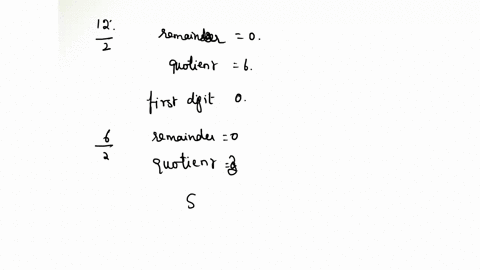 12/2 remainder = 0.
quotient = 6.
first digit 0.
6/2 remainder = 0
quotient = 3
S